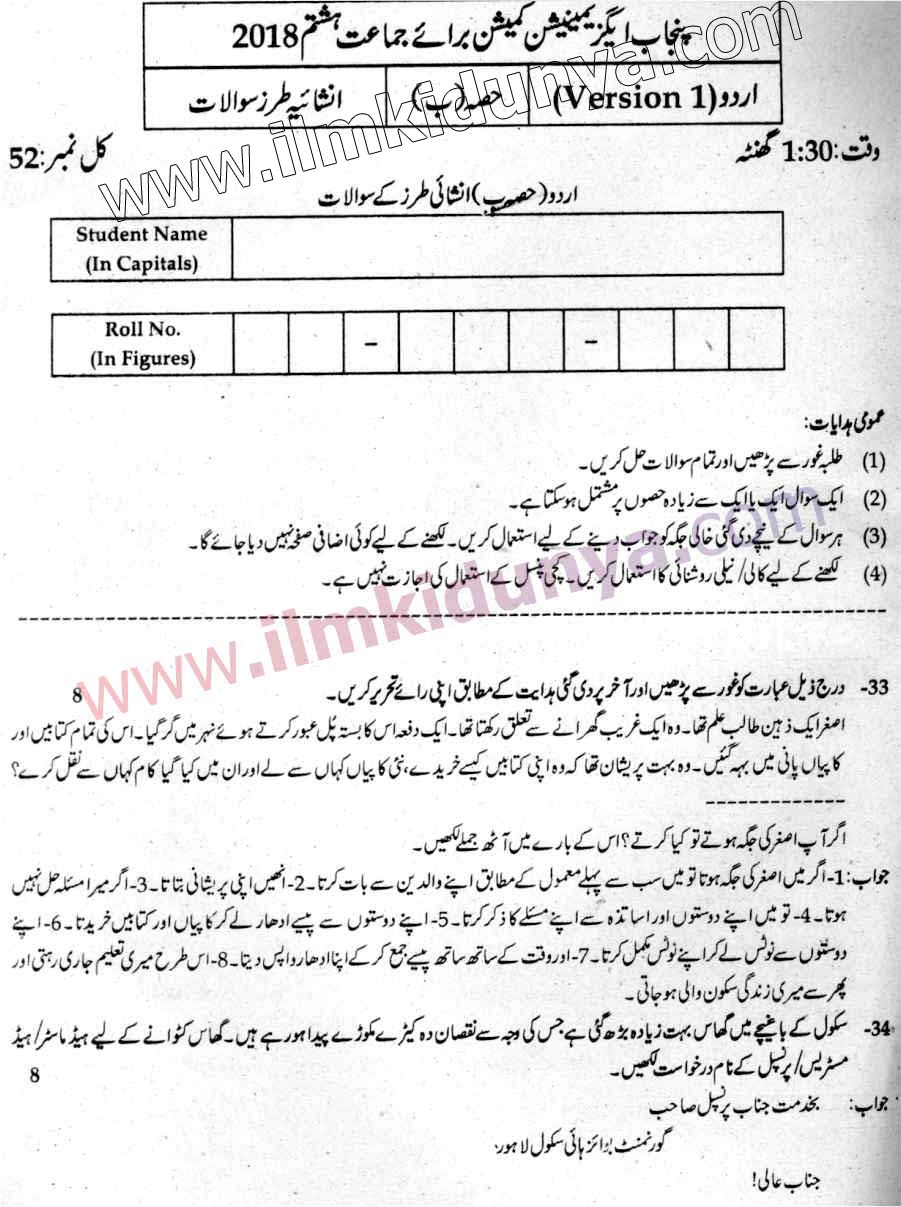 پنجاب ایگزیمینیشن کمیشن برائے جماعت ہشتم 2018
اردو (Version 1) حصہ (ب) انشائیہ طرز سوالات
وقت: 1:30 گھنٹہ کل نمبر: 52
اردو (حصہ ب) انشائی طرز کے سوالات
Student Name
(In Capitals)
Roll No.
(In Figures)
- -
عمومی ہدایات:
(1) طلبہ غور سے پڑھیں اور تمام سوالات حل کریں۔
(2) ایک سوال ایک یا ایک سے زیادہ حصوں پر مشتمل ہو سکتا ہے۔
(3) ہر سوال کے نیچے دی گئی خالی جگہ کو جواب دینے کے لیے استعمال کریں۔ لکھنے کے لیے کوئی اضافی صفحہ نہیں دیا جائے گا۔
(4) لکھنے کے لیے کالی/نیلی روشنائی کا استعمال کریں۔ کچی پنسل کے استعمال کی اجازت نہیں ہے۔
33- درج ذیل عبارت کو غور سے پڑھیں اور آخر پر دی گئی ہدایت کے مطابق اپنی رائے تحریر کریں۔ 8
اصغر ایک ذہین طالب علم تھا۔ وہ ایک غریب گھرانے سے تعلق رکھتا تھا۔ ایک دفعہ اس کا بستہ پُل عبور کرتے ہوئے نہر میں گر گیا۔ اس کی تمام کتابیں اور
کاپیاں پانی میں بہہ گئیں۔ وہ بہت پریشان تھا کہ وہ اپنی کتابیں کیسے خریدے، نئی کاپیاں کہاں سے لے اور ان میں کیا گیا کام کہاں سے نقل کرے؟
-------------
اگر آپ اصغر کی جگہ ہوتے تو کیا کرتے؟ اس کے بارے میں آٹھ جملے لکھیں۔
جواب: 1- اگر میں اصغر کی جگہ ہوتا تو میں سب سے پہلے معمول کے مطابق اپنے والدین سے بات کرتا۔ 2- انھیں اپنی پریشانی بتاتا۔ 3- اگر میرا مسئلہ حل نہیں
ہوتا۔ 4- تو میں اپنے دوستوں اور اساتذہ سے اپنے مسئلے کا ذکر کرتا۔ 5- اپنے دوستوں سے پیسے ادھار لے کر کاپیاں اور کتابیں خریدتا۔ 6- اپنے
دوستوں سے نوٹس لے کر اپنے نوٹس مکمل کرتا۔ 7- اور وقت کے ساتھ ساتھ پیسے جمع کر کے اپنا ادھار واپس دیتا۔ 8- اس طرح میری تعلیم جاری رہتی اور
پھر سے میری زندگی سکون والی ہو جاتی۔
34- سکول کے باغیچے میں گھاس بہت زیادہ بڑھ گئی ہے جس کی وجہ سے نقصان دہ کیڑے مکوڑے پیدا ہو رہے ہیں۔ گھاس کٹوانے کے لیے ہیڈ ماسٹر/ہیڈ
مسٹریس/پرنسپل کے نام درخواست لکھیں۔ 8
جواب: بخدمت جناب پرنسپل صاحب
گورنمنٹ بوائز ہائی سکول لاہور
جناب عالی!
www.ilmkidunya.com
www.ilmkidunya.com